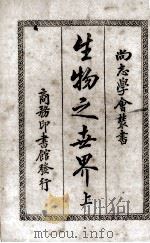 尚志學會叢書
生物之世界 上
商務印書館發行